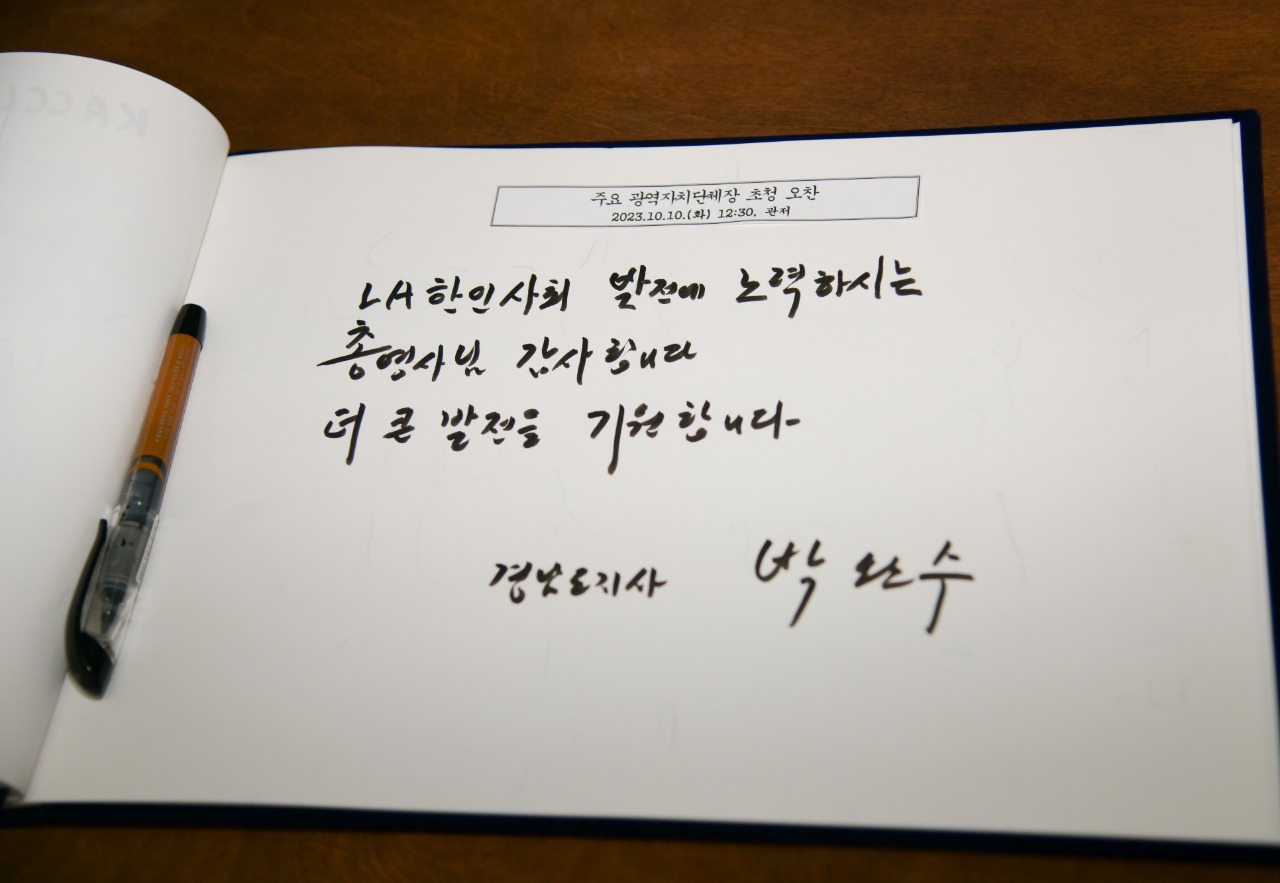 주요 광역자치단체장 초청 오찬
2023.10.10.(화) 12:30, 관저
LA 한인사회 발전에 노력하시는
총영사님 감사합니다
더 큰 발전을 기원합니다
경남도지사 박완수